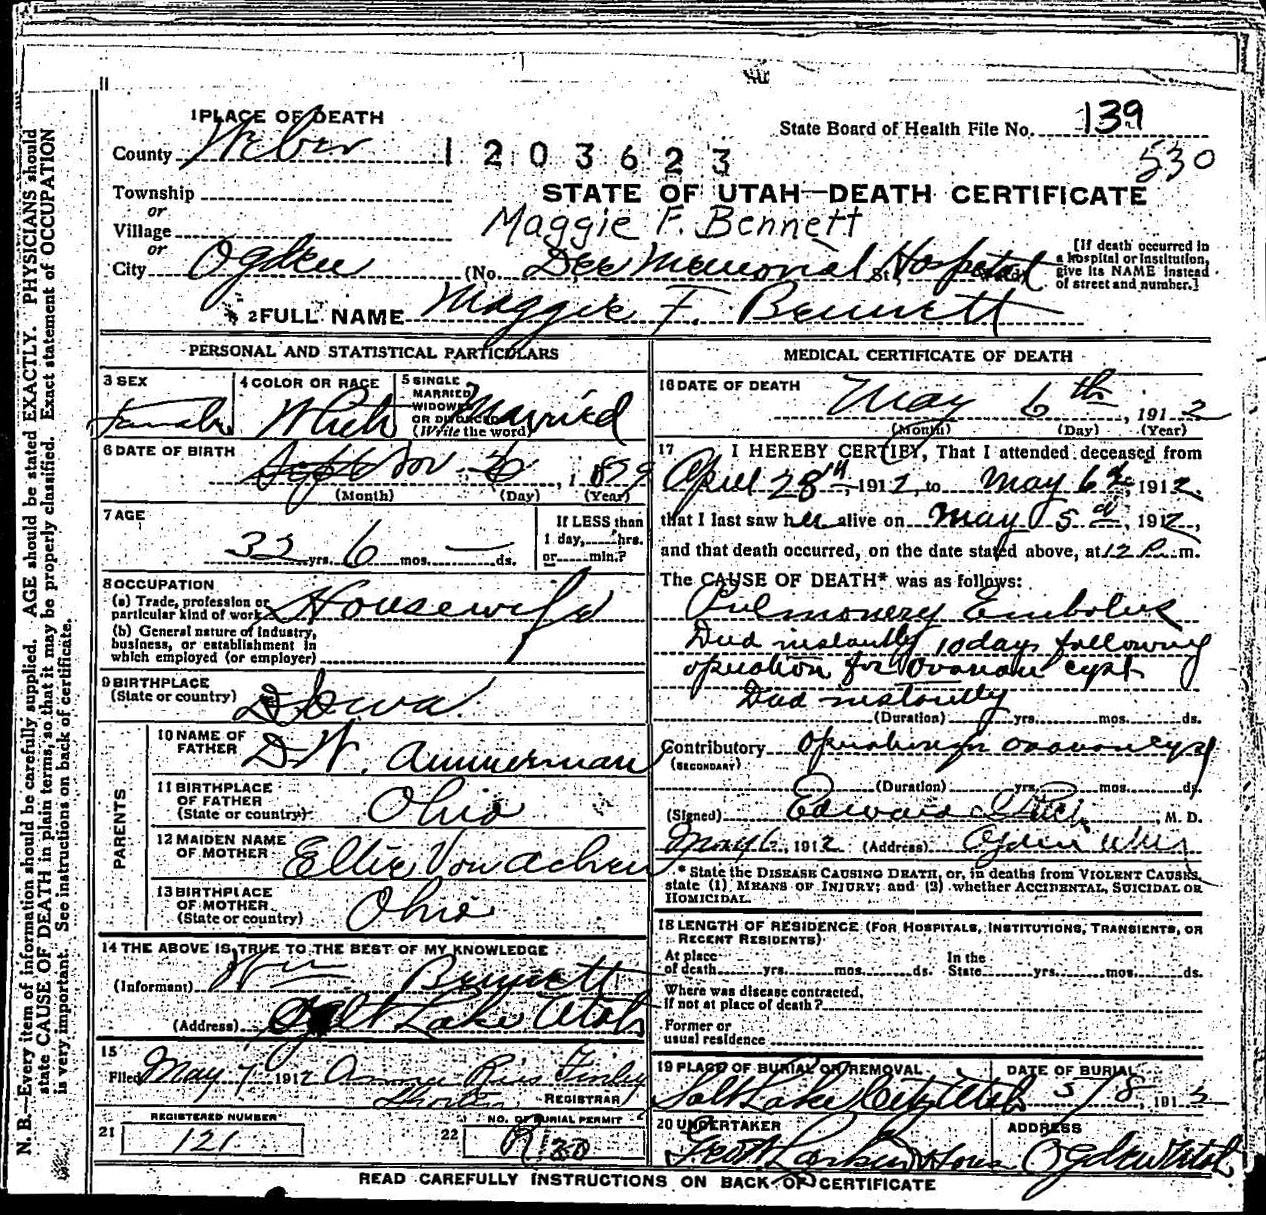 11
1 PLACE OF DEATH
State Board of Health File No. 139
County Weber
1203623
530
Township
or
Village
or
City Ogden
STATE OF UTAH—DEATH CERTIFICATE
Maggie F. Bennett
(No. Dee Memorial St. Hospital
[If death occurred in
a hospital or institution,
give its NAME instead
of street and number.]
2 FULL NAME Maggie F. Bennett
PERSONAL AND STATISTICAL PARTICULARS
3 SEX
Female
4 COLOR OR RACE
White
5 SINGLE
MARRIED
WIDOWED
OR DIVORCED
(Write the word)
Married
6 DATE OF BIRTH
Sept Nov 6, 1879
(Month) (Day) (Year)
7 AGE
32 yrs. 6 mos. — ds.
If LESS than
1 day, hrs.
or min.?
8 OCCUPATION
(a) Trade, profession or
particular kind of work
Housewife
(b) General nature of industry,
business, or establishment in
which employed (or employer)
9 BIRTHPLACE
(State or country)
Iowa
PARENTS
10 NAME OF
FATHER
D. W. Ammerman
11 BIRTHPLACE
OF FATHER
(State or country)
Ohio
12 MAIDEN NAME
OF MOTHER
Ellie Von Achen
13 BIRTHPLACE
OF MOTHER
(State or country)
Ohio
14 THE ABOVE IS TRUE TO THE BEST OF MY KNOWLEDGE
(Informant) Wm Bennett
(Address) Salt Lake Utah
15
Filed May 7, 1912 Anna Ries Finley
REGISTRAR
REGISTERED NUMBER
21 121
NO. OF BURIAL PERMIT
22 R 30
MEDICAL CERTIFICATE OF DEATH
16 DATE OF DEATH
May 6th, 1912
(Month) (Day) (Year)
17 I HEREBY CERTIFY, That I attended deceased from
April 28th, 1912, to May 6th, 1912.
that I last saw her alive on May 5th, 1912,
and that death occurred, on the date stated above, at 12 P. m.
The CAUSE OF DEATH* was as follows:
Pulmonery Embolus
Died instantly 10 days following
operation for Ovarian cyst
Died instantly
(Duration) yrs. mos. ds.
Contributory operation for ovarian cyst
(SECONDARY)
(Duration) yrs. mos. ds.
(Signed) Edward I Rich, M. D.
May 6, 1912 (Address) Ogden Utah
* State the DISEASE CAUSING DEATH, or, in deaths from VIOLENT CAUSES,
state (1) MEANS OF INJURY; and (2) whether ACCIDENTAL, SUICIDAL OR
HOMICIDAL.
18 LENGTH OF RESIDENCE (FOR HOSPITALS, INSTITUTIONS, TRANSIENTS, OR
RECENT RESIDENTS)
At place
of death yrs. mos. ds.
In the
State yrs. mos. ds.
Where was disease contracted,
if not at place of death?
Former or
usual residence
19 PLACE OF BURIAL OR REMOVAL
Salt Lake City Utah
DATE OF BURIAL
5/8, 1912
20 UNDERTAKER
Larkin & Sons
ADDRESS
Ogden Utah
READ CAREFULLY INSTRUCTIONS ON BACK OF CERTIFICATE
N. B.—Every item of information should be carefully supplied. AGE should be stated EXACTLY. PHYSICIANS should
state CAUSE OF DEATH in plain terms, so that it may be properly classified. Exact statement of OCCUPATION
is very important. See instructions on back of certificate.